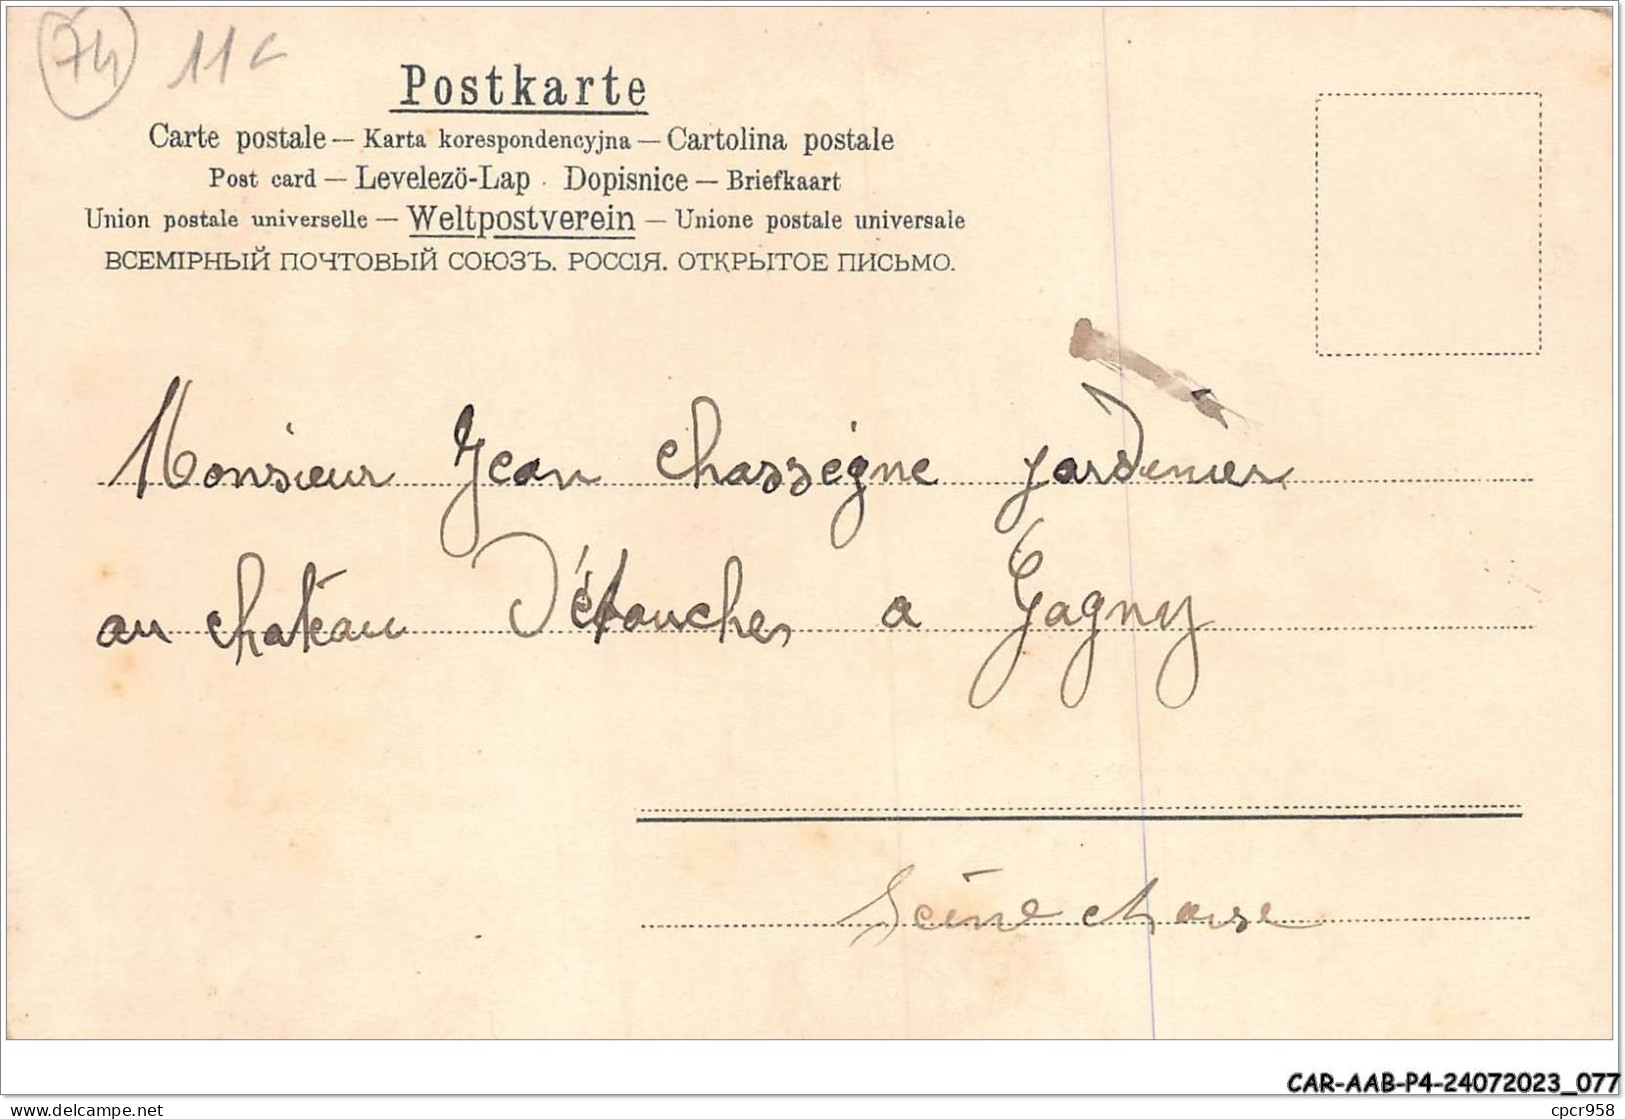 74 11c
Postkarte
Carte postale — Karta korespondencyjna — Cartolina postale
Post card — Levelezö-Lap · Dopisnice — Briefkaart
Union postale universelle — Weltpostverein — Unione postale universale
ВСЕМІРНЫЙ ПОЧТОВЫЙ СОЮЗЪ. РОССІЯ. ОТКРЫТОЕ ПИСЬМО.
Monsieur Jean Chassègne jardinier
au chateau Détouches a Gagny
Seine
CAR-AAB-P4-24072023_077
delcampe.net
cpcr958